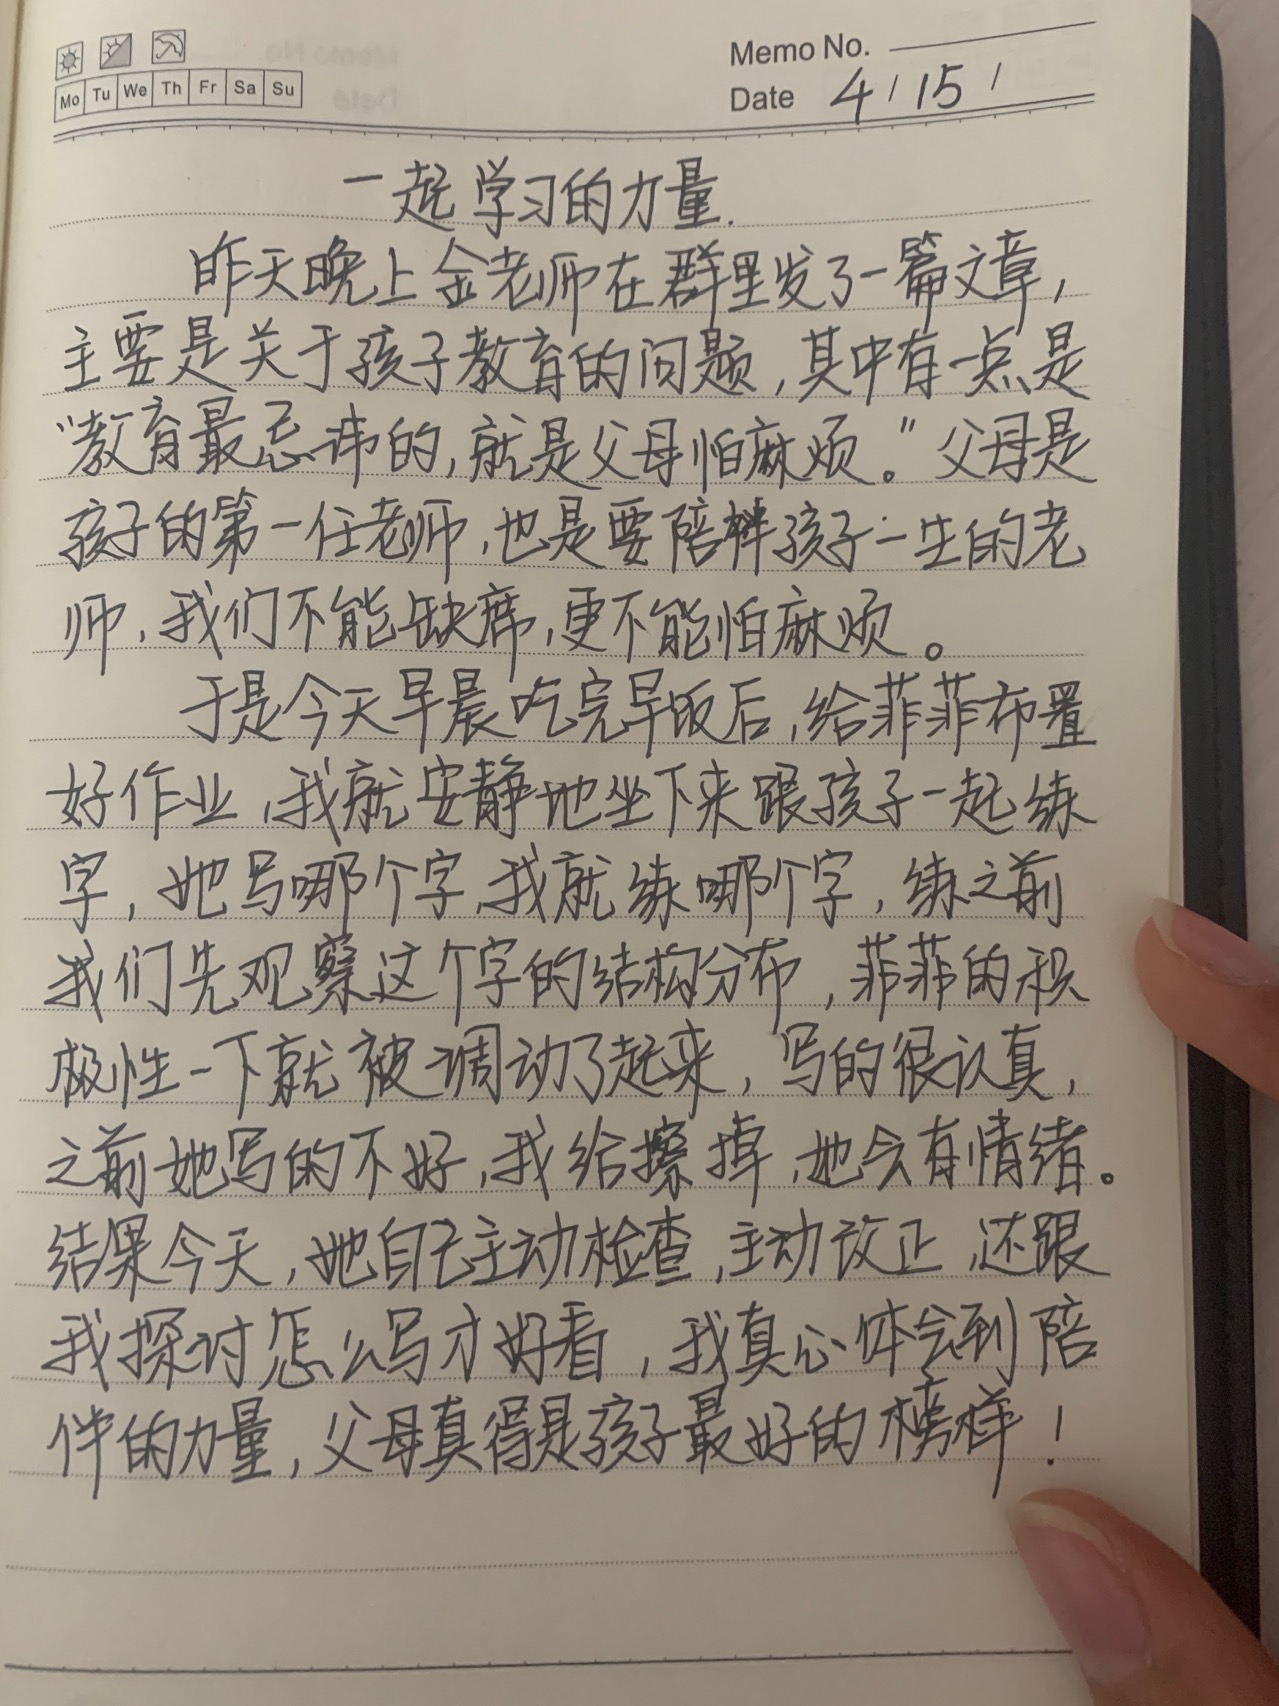 Memo No.
Mo Tu We Th Fr Sa Su
Date 4/15/
一起学习的力量.
昨天晚上金老师在群里发了一篇文章,
主要是关于孩子教育的问题,其中有一点是
“教育最忌讳的,就是父母怕麻烦。”父母是
孩子的第一任老师,也是要陪伴孩子一生的老
师,我们不能缺席,更不能怕麻烦。
于是今天早晨吃完早饭后,给菲菲布置
好作业,我就安静地坐下来跟孩子一起练
字,她写哪个字,我就练哪个字,练之前
我们先观察这个字的结构分布,菲菲的积
极性一下就被调动了起来,写的很认真,
之前她写的不好,我给擦掉,她会有情绪。
结果今天,她自己主动检查,主动改正,还跟
我探讨怎么写才好看,我真心体会到陪
伴的力量,父母真得是孩子最好的榜样!